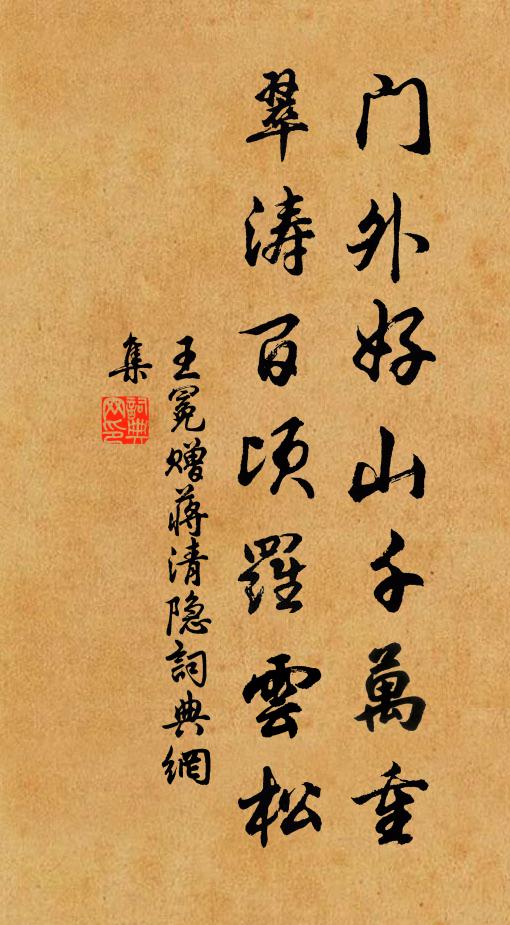 门外好山千萬重
翠涛百顷羅雲松
王冕赠蒋清隐詞典網
集
詞典
网印